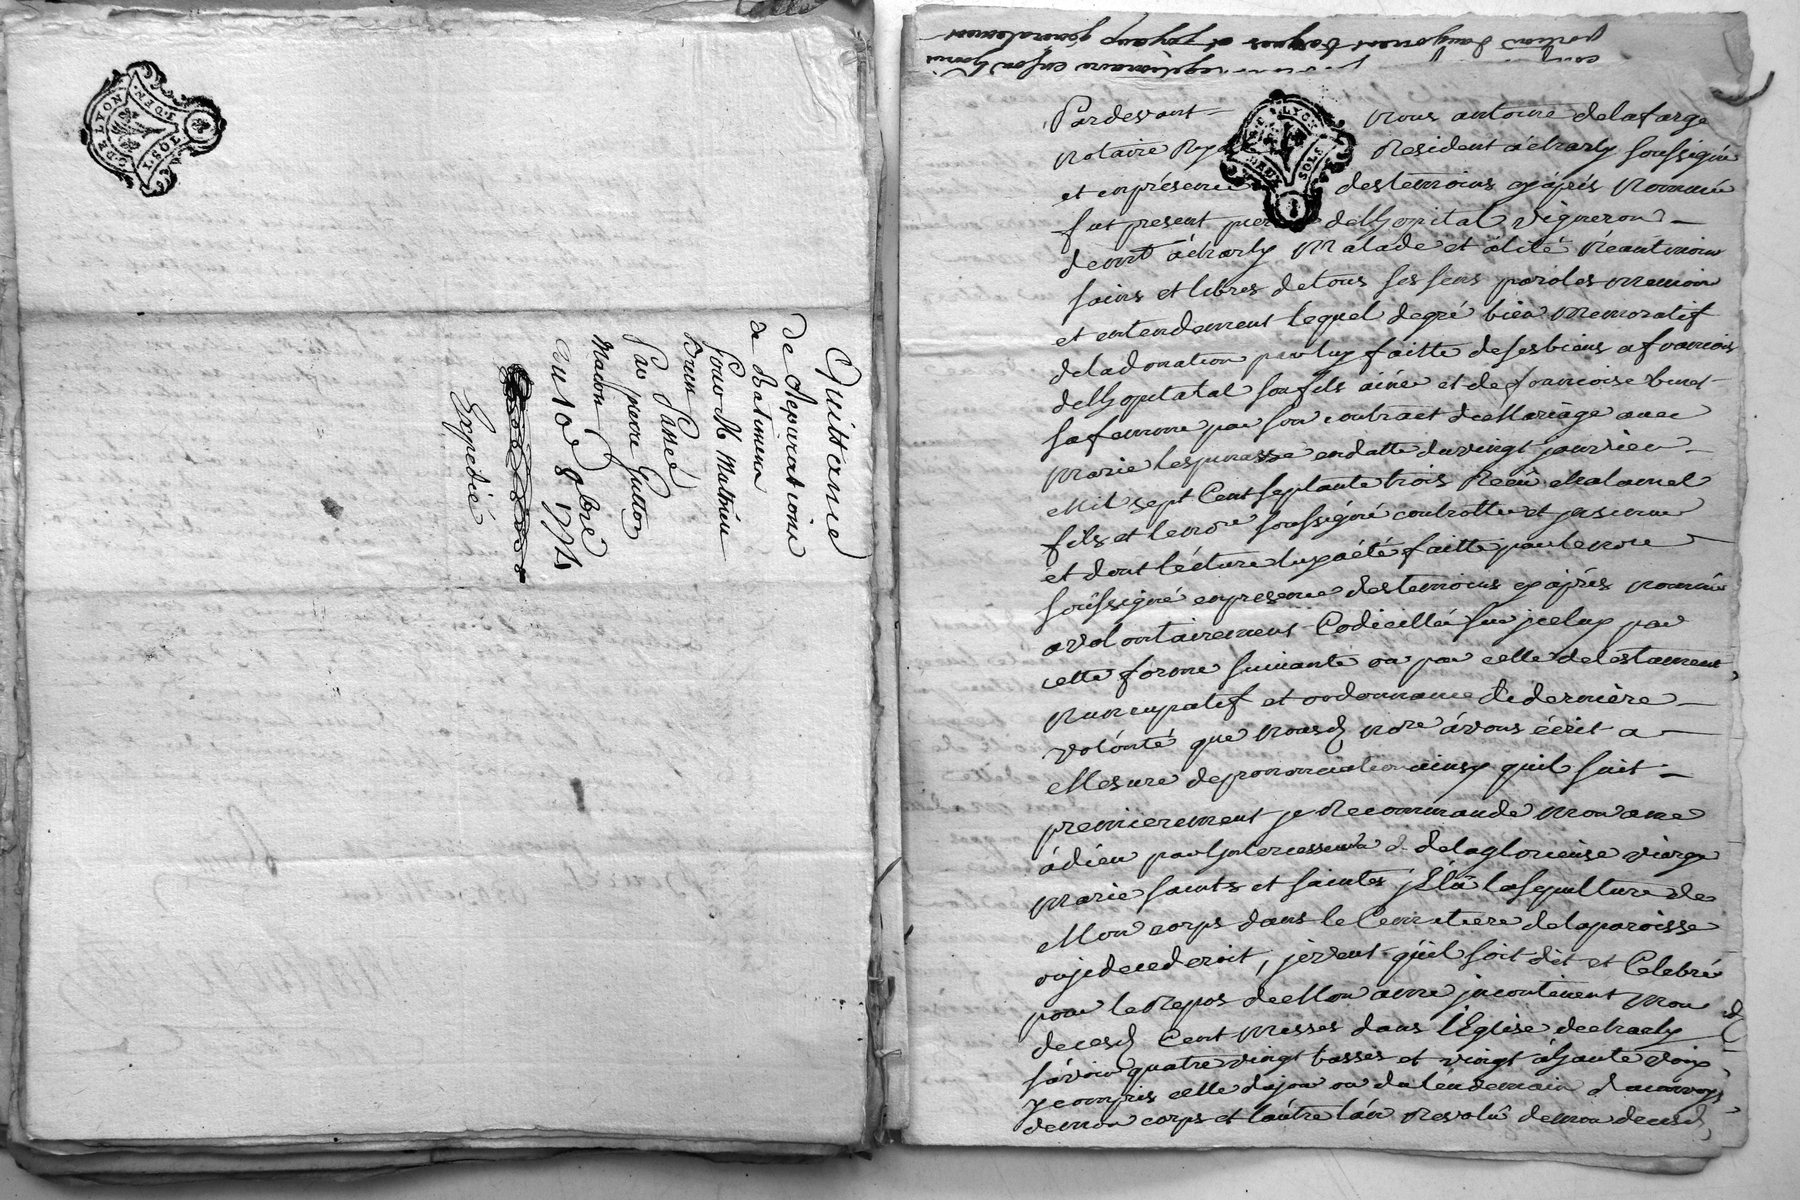 DE LYON
1 SOL 1 DEN.
Quittance
de Reparations
de Batiment
pour M Mathieu
Brun Passé
Par pierre Gutton
Macon
Du 10e 8bre
1774
Expediée
Pardevant Nous antoine delafarge
Notaire Royal Resident à charly soussigné
et en présence des temoins cy après nommés
fut present pierre delhopital vigneron
demt à charly Malade et alité Neantmoins
sains et libres de tous ses sens paroles memoire
et entendement lequel de gré bien memoratif
de la donation par luy faitte de ses biens a francois
delhopitatal son fils ainé et de francoise binet
sa femme par son contract de Mariage avec
Marie lespinasse en datte du vingt janvier
Mil sept Cent septante trois Recû chalamel
fils et le nore soussigné controllé et jnsinue
et dont lécture luy a été faitte par le nore
soussigné en presence des temoins cy après nommés
a volontairement Codicillé sur jceluy par
cette forme suivante ou par celle de testament
Nuncupatif et ordonnance de derniere
volonté que nousd. nore avons écrit a
Mesure de prononciation ainsy quil suit
premierement je Recommande mon ame
à dieu par lintercession de la glorieuse vierge
Marie saints et saintes j'Elis la sepulture de
Mon corps dans le Cemetiere de la paroisse
ou je decederoit, je veut qu'il soit dit et Celebré
pour le Repos de Mon ame jncontinent mon
decesd Cent Messes dans l'Eglise de charly
sávoir quatre vingt basses et vingt à haute voix,
y compris celle du jour ou du lendemain
de mon corps et l'autre l'an Revolû de mon decesd,